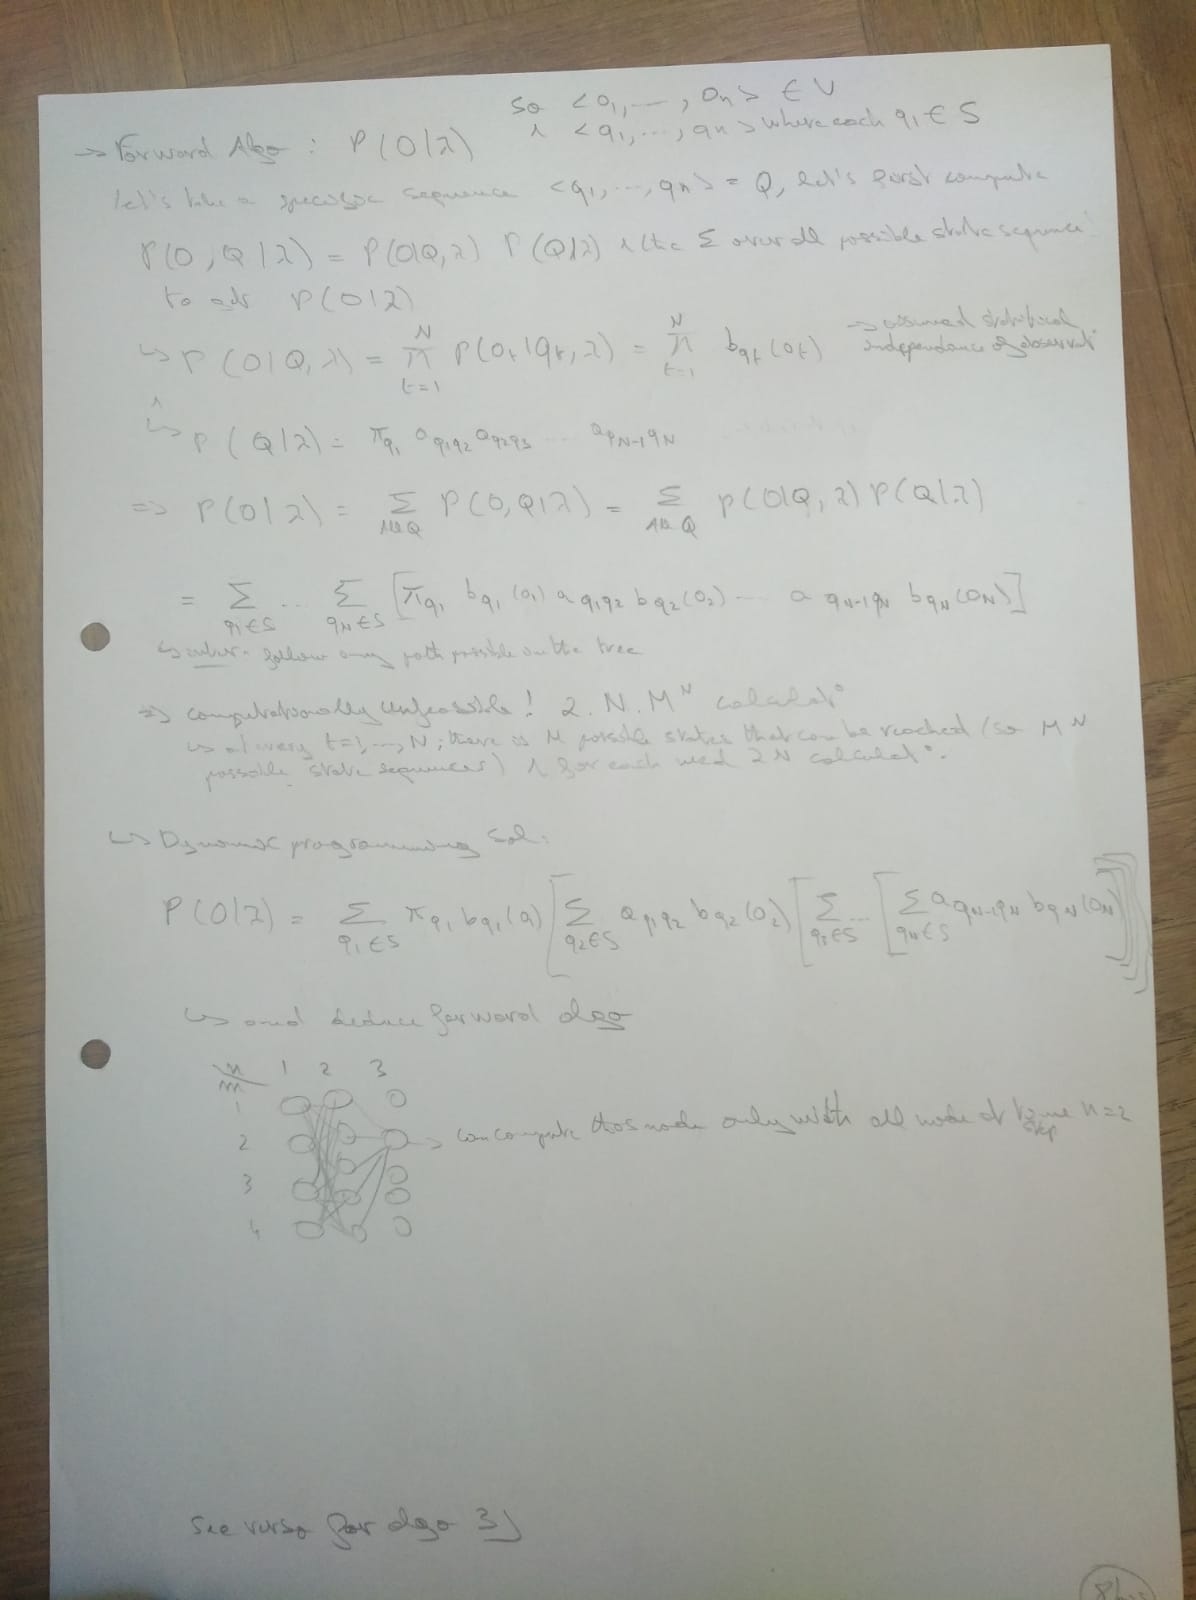 So <o₁, ..., oₙ> ∈ V
∧ <q₁, ..., qₙ> where each qᵢ ∈ S
→ Forward Algo : P(O|λ)
let's take a specific sequence <q₁, ..., qₙ> = Q, let's first compute
P(O, Q|λ) = P(O|Q, λ) P(Q|λ) ∧ the Σ over all possible state sequence
to get P(O|λ)
↳ P(O|Q, λ) = ∏_{t=1}^{N} P(o_t|q_t, λ) = ∏_{t=1}^{N} b_{q_t}(o_t) → assumed statistical
independance of observat°
∧
↳ P(Q|λ) = π_{q₁} a_{q₁q₂} a_{q₂q₃} ... a_{q_{N-1}q_N}
=> P(O|λ) = Σ_{All Q} P(O, Q|λ) = Σ_{All Q} P(O|Q, λ) P(Q|λ)
= Σ_{q₁∈S} ... Σ_{q_N∈S} [π_{q₁} b_{q₁}(o₁) a_{q₁q₂} b_{q₂}(o₂) ... a_{q_{N-1}q_N} b_{q_N}(o_N)]
↳ follow any path possible on the tree
=> computationally unfeasible! 2.N.M^N calculat°
↳ at every t=1, ..., N, there is M possible states that can be reached (so M^N
possible state sequences) ∧ for each need 2N calculat°.
↳ Dynamic programming sol:
P(O|λ) = Σ_{q₁∈S} π_{q₁} b_{q₁}(o₁) [Σ_{q₂∈S} a_{q₁q₂} b_{q₂}(o₂) [Σ_{q₃∈S} ... [Σ_{q_N∈S} a_{q_{N-1}q_N} b_{q_N}(o_N)]]]
↳ and deduce forward algo
n 1 2 3
m
1
2 → can compute this node only with all node at time n=2
step
3
4
See verso for algo 3)
8bis